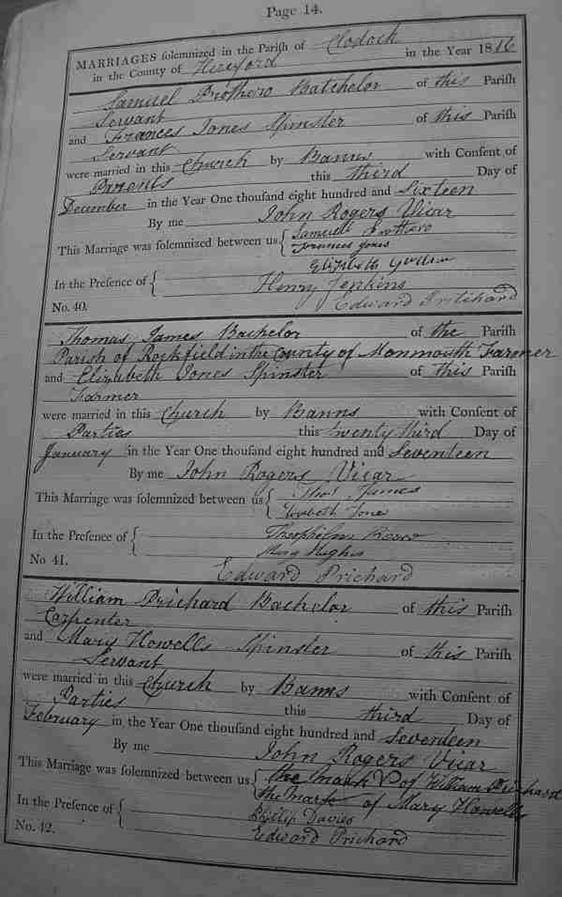 Page 14.
MARRIAGES solemnized in the Parish of Clodock
in the County of Hereford in the Year 1816
Samuel Prothero Batchelor of this Parish
Servant
and Frances Jones Spinster of this Parish
Servant
were married in this Church by Banns with Consent of
Parents this third Day of
December in the Year One thousand eight hundred and Sixteen
By me John Rogers Vicar
This Marriage was solemnized between us { Samuel Prothero
Frances Jones
Elizabeth
In the Presence of { Henry Jenkins
No. 40. Edward Pritchard
Thomas James Bachelor of the Parish
Parish of Rockfield in the County of Monmouth Farmer
and Elizabeth Jones Spinster of this Parish
Farmer
were married in this Church by Banns with Consent of
Parties this twenty third Day of
January in the Year One thousand eight hundred and Seventeen
By me John Rogers Vicar
This Marriage was solemnized between us { Thos James
Jones
In the Presence of { Theophilus
Mary Hughes
No 41. Edward Prichard
William Prichard Bachelor of this Parish
Carpenter
and Mary Howells Spinster of this Parish
Servant
were married in this Church by Banns with Consent of
Parties this third Day of
February in the Year One thousand eight hundred and Seventeen
By me John Rogers Vicar
This Marriage was solemnized between us { the mark of William Prichard
the mark of Mary Howells
In the Presence of { Philip Davies
No. 42. Edward Prichard